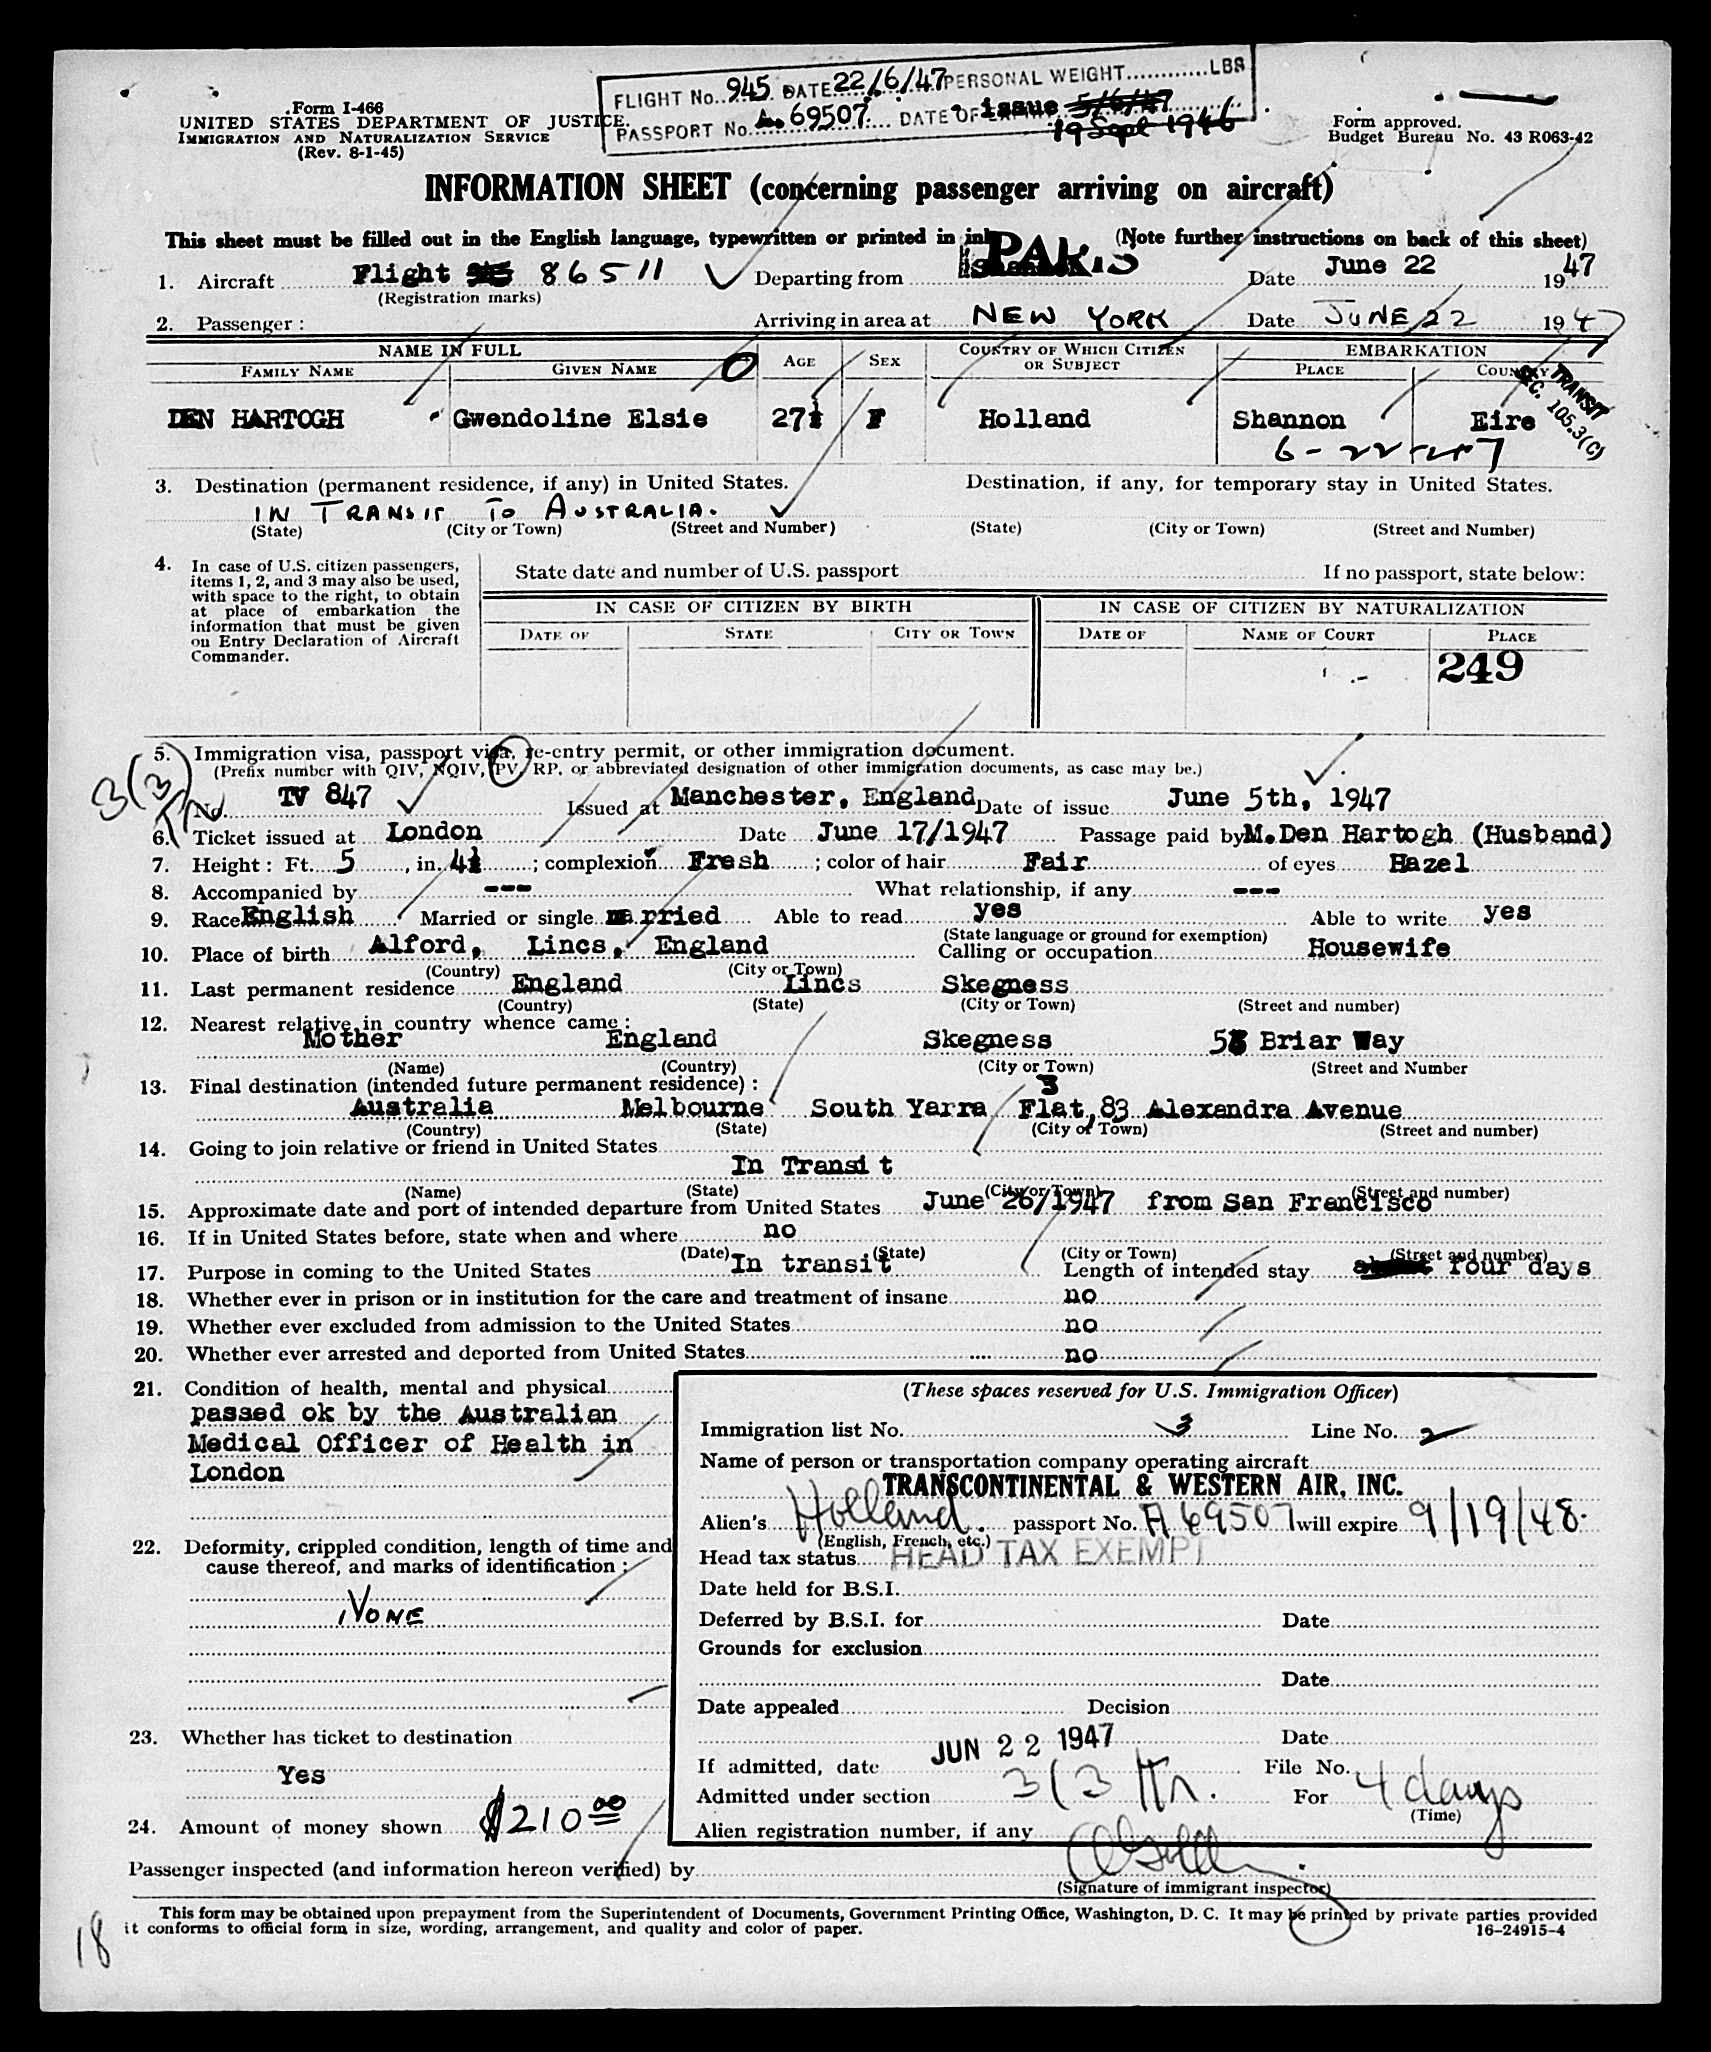 FLIGHT No. 945 DATE 22/6/47 PERSONAL WEIGHT............LBS
PASSPORT No. A. 69507. DATE OF issue 5/6/47
19 Sept 1946
Form I-466
UNITED STATES DEPARTMENT OF JUSTICE.
IMMIGRATION AND NATURALIZATION SERVICE
(Rev. 8-1-45)
Form approved.
Budget Bureau No. 43 R063-42
INFORMATION SHEET (concerning passenger arriving on aircraft)
This sheet must be filled out in the English language, typewritten or printed in ink. (Note further instructions on back of this sheet)
1. Aircraft Flight 945 86511 Departing from Shannon PARIS Date June 22 1947
(Registration marks)
2. Passenger: Arriving in area at NEW YORK Date JUNE 22 1947
NAME IN FULL AGE SEX COUNTRY OF WHICH CITIZEN OR SUBJECT EMBARKATION
FAMILY NAME GIVEN NAME PLACE COUNTRY
TRANSIT
SEC. 105.3(C)
DEN HARTOGH Gwendoline Elsie 27½ F Holland Shannon Eire
6-22-47
3. Destination (permanent residence, if any) in United States. Destination, if any, for temporary stay in United States.
IN TRANSIT TO AUSTRALIA.
(State) (City or Town) (Street and Number) (State) (City or Town) (Street and Number)
4. In case of U.S. citizen passengers,
items 1, 2, and 3 may also be used,
with space to the right, to obtain
at place of embarkation the
information that must be given
on Entry Declaration of Aircraft
Commander.
State date and number of U.S. passport If no passport, state below:
IN CASE OF CITIZEN BY BIRTH IN CASE OF CITIZEN BY NATURALIZATION
DATE OF STATE CITY OR TOWN DATE OF NAME OF COURT PLACE
249
5. Immigration visa, passport visa, re-entry permit, or other immigration document.
(Prefix number with QIV, NQIV, PV, RP. or abbreviated designation of other immigration documents, as case may be.)
3(3)
No. TV 847 Issued at Manchester, England Date of issue June 5th, 1947
6. Ticket issued at London Date June 17/1947 Passage paid by M.Den Hartogh (Husband)
7. Height: Ft. 5, in. 4½; complexion Fresh; color of hair Fair of eyes Hazel
8. Accompanied by --- What relationship, if any ---
9. Race English Married or single married Able to read yes Able to write yes
(State language or ground for exemption)
10. Place of birth Alford, Lincs, England Calling or occupation Housewife
(Country) (City or Town)
11. Last permanent residence England Lincs Skegness
(Country) (State) (City or Town) (Street and number)
12. Nearest relative in country whence came:
Mother England Skegness Briar Way
(Name) (Country) (City or Town) (Street and Number
13. Final destination (intended future permanent residence):
Australia Melbourne South Yarra Flat 3, 83 Alexandra Avenue
(Country) (State) (City or Town) (Street and number)
14. Going to join relative or friend in United States
In Transit
(Name) (State) (City or Town) (Street and number)
15. Approximate date and port of intended departure from United States June 26/1947 from San Francisco
16. If in United States before, state when and where no
(Date) (State) (City or Town) (Street and number)
17. Purpose in coming to the United States In transit Length of intended stay four days
18. Whether ever in prison or in institution for the care and treatment of insane no
19. Whether ever excluded from admission to the United States no
20. Whether ever arrested and deported from United States no
21. Condition of health, mental and physical
passed ok by the Australian
Medical Officer of Health in
London
22. Deformity, crippled condition, length of time and
cause thereof, and marks of identification:
NONE
23. Whether has ticket to destination
Yes
24. Amount of money shown $210.00
(These spaces reserved for U.S. Immigration Officer)
Immigration list No. 3 Line No. 2
Name of person or transportation company operating aircraft
TRANSCONTINENTAL & WESTERN AIR, INC.
Alien's Holland. passport No. A 69507 will expire 9/19/48.
(English, French, etc.)
Head tax status HEAD TAX EXEMPT
Date held for B.S.I.
Deferred by B.S.I. for Date
Grounds for exclusion
Date
Date appealed Decision
Date
If admitted, date JUN 22 1947 File No.
Admitted under section 3(3 For 4 days
(Time)
Alien registration number, if any
Passenger inspected (and information hereon verified) by
(Signature of immigrant inspector)
This form may be obtained upon prepayment from the Superintendent of Documents, Government Printing Office, Washington, D. C. It may be printed by private parties provided
it conforms to official form in size, wording, arrangement, and quality and color of paper.
16-24915-4
18